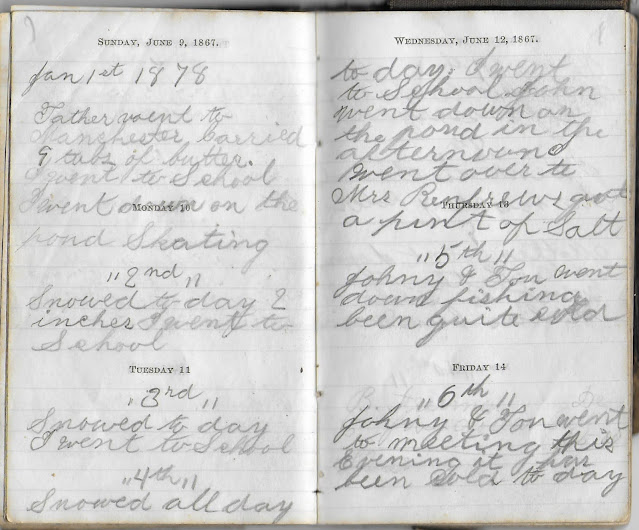 SUNDAY, JUNE 9, 1867.
Jan 1st 1878
Father went to
Manchester Carried
9 tubs of butter.
I went to School
I went down on the
MONDAY 10
pond Skating
"2nd"
Snowed to day 2
inches I went to
School
TUESDAY 11
"3rd"
Snowed to day
I went to School
"4th"
Snowed all day
WEDNESDAY, JUNE 12, 1867.
to day. I went
to School John
went down on
the pond in the
afternoon
went over to
Mrs got
THURSDAY 13
a pint of Salt
"5th"
Johny & Lou went
down fishing
been quite cold
FRIDAY 14
"6th"
Johny & Lou went
to meeting this
Evening it has
been cold to day